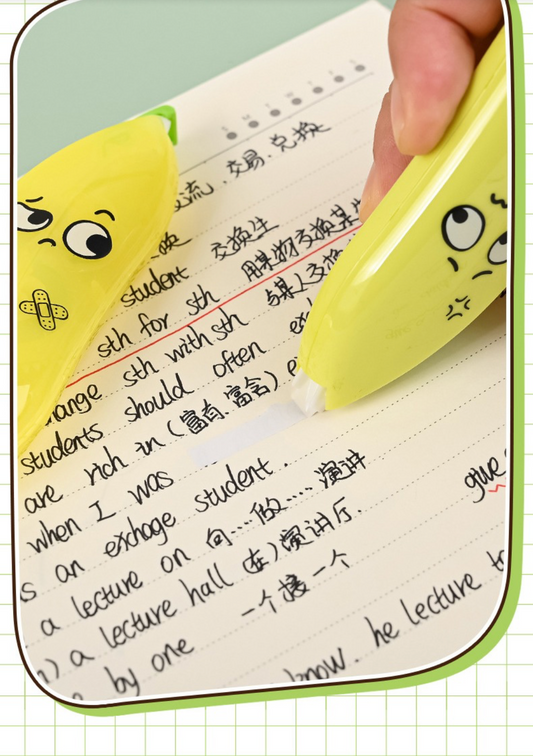 流、交易、兑换
换
student 交换生
sth for sth 用某物交换某
hange sth with sth 与某人交换
students should often ex
are rich in (富有、富含) e
when I was
s an exchage student .
a lecture on 向…做…. 演讲
) a lecture hall (在)演讲厅.
by one 一个接一个
give
know. he lecture to